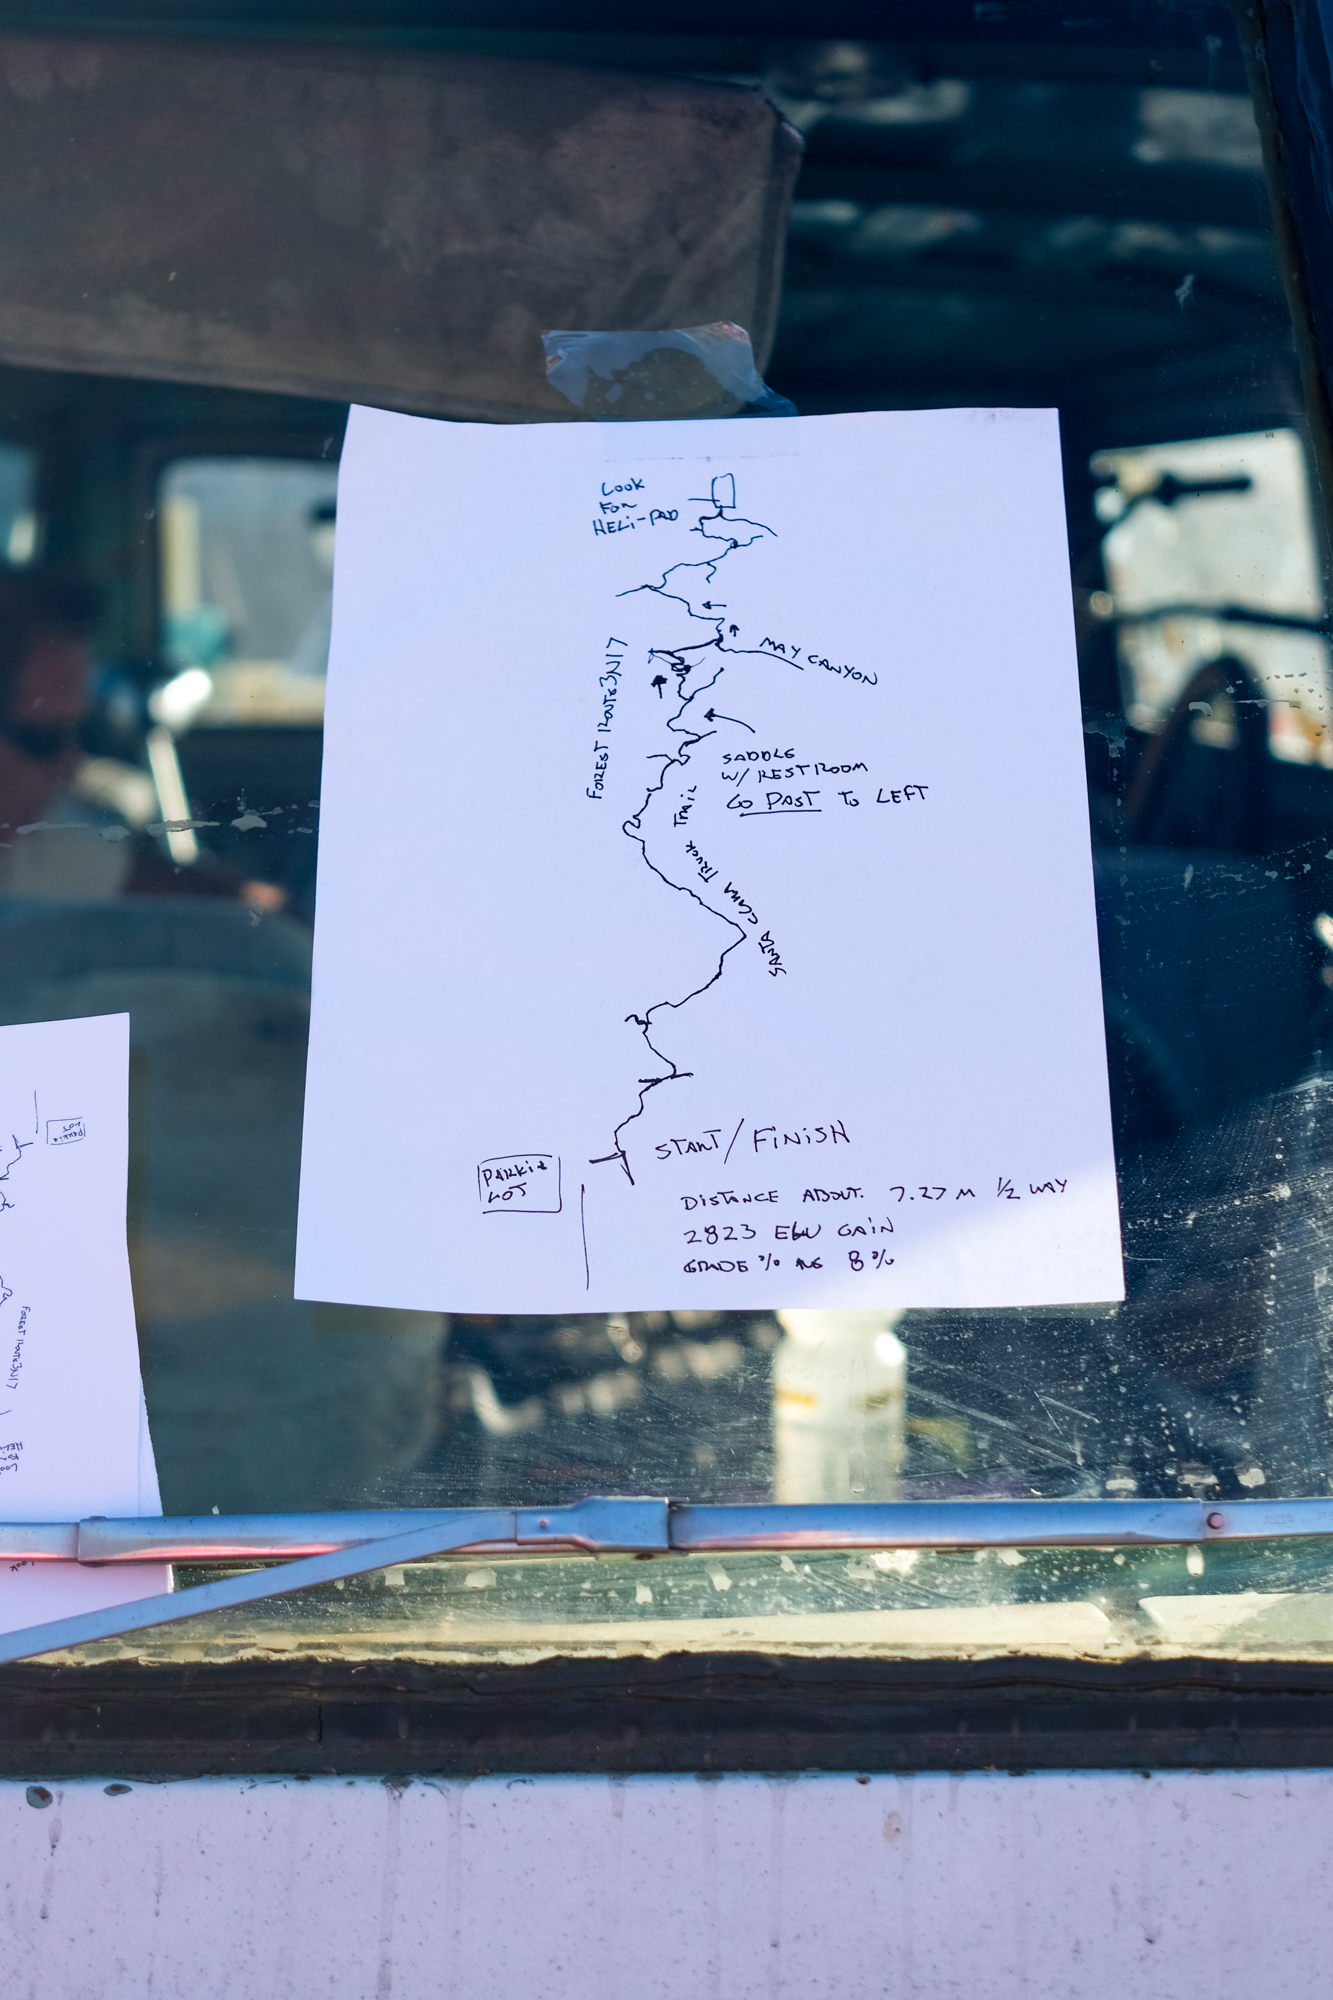 LOOK
FOR
HELi-PAD
MAY CANYON
FOREST ROUTE 3N17
SADDLE
W/ RESTROOM
GO PAST TO LEFT
SANTA CLARA TRUCK TRAIL
START/FiNiSH
PARKiG
LOT
DiSTANCE ABOUT. 7.27 M 1/2 WAY
2823 ELV GAiN
GRADE % AVG 8%
PARKiG
LOT
FOREST ROUTE 3N17